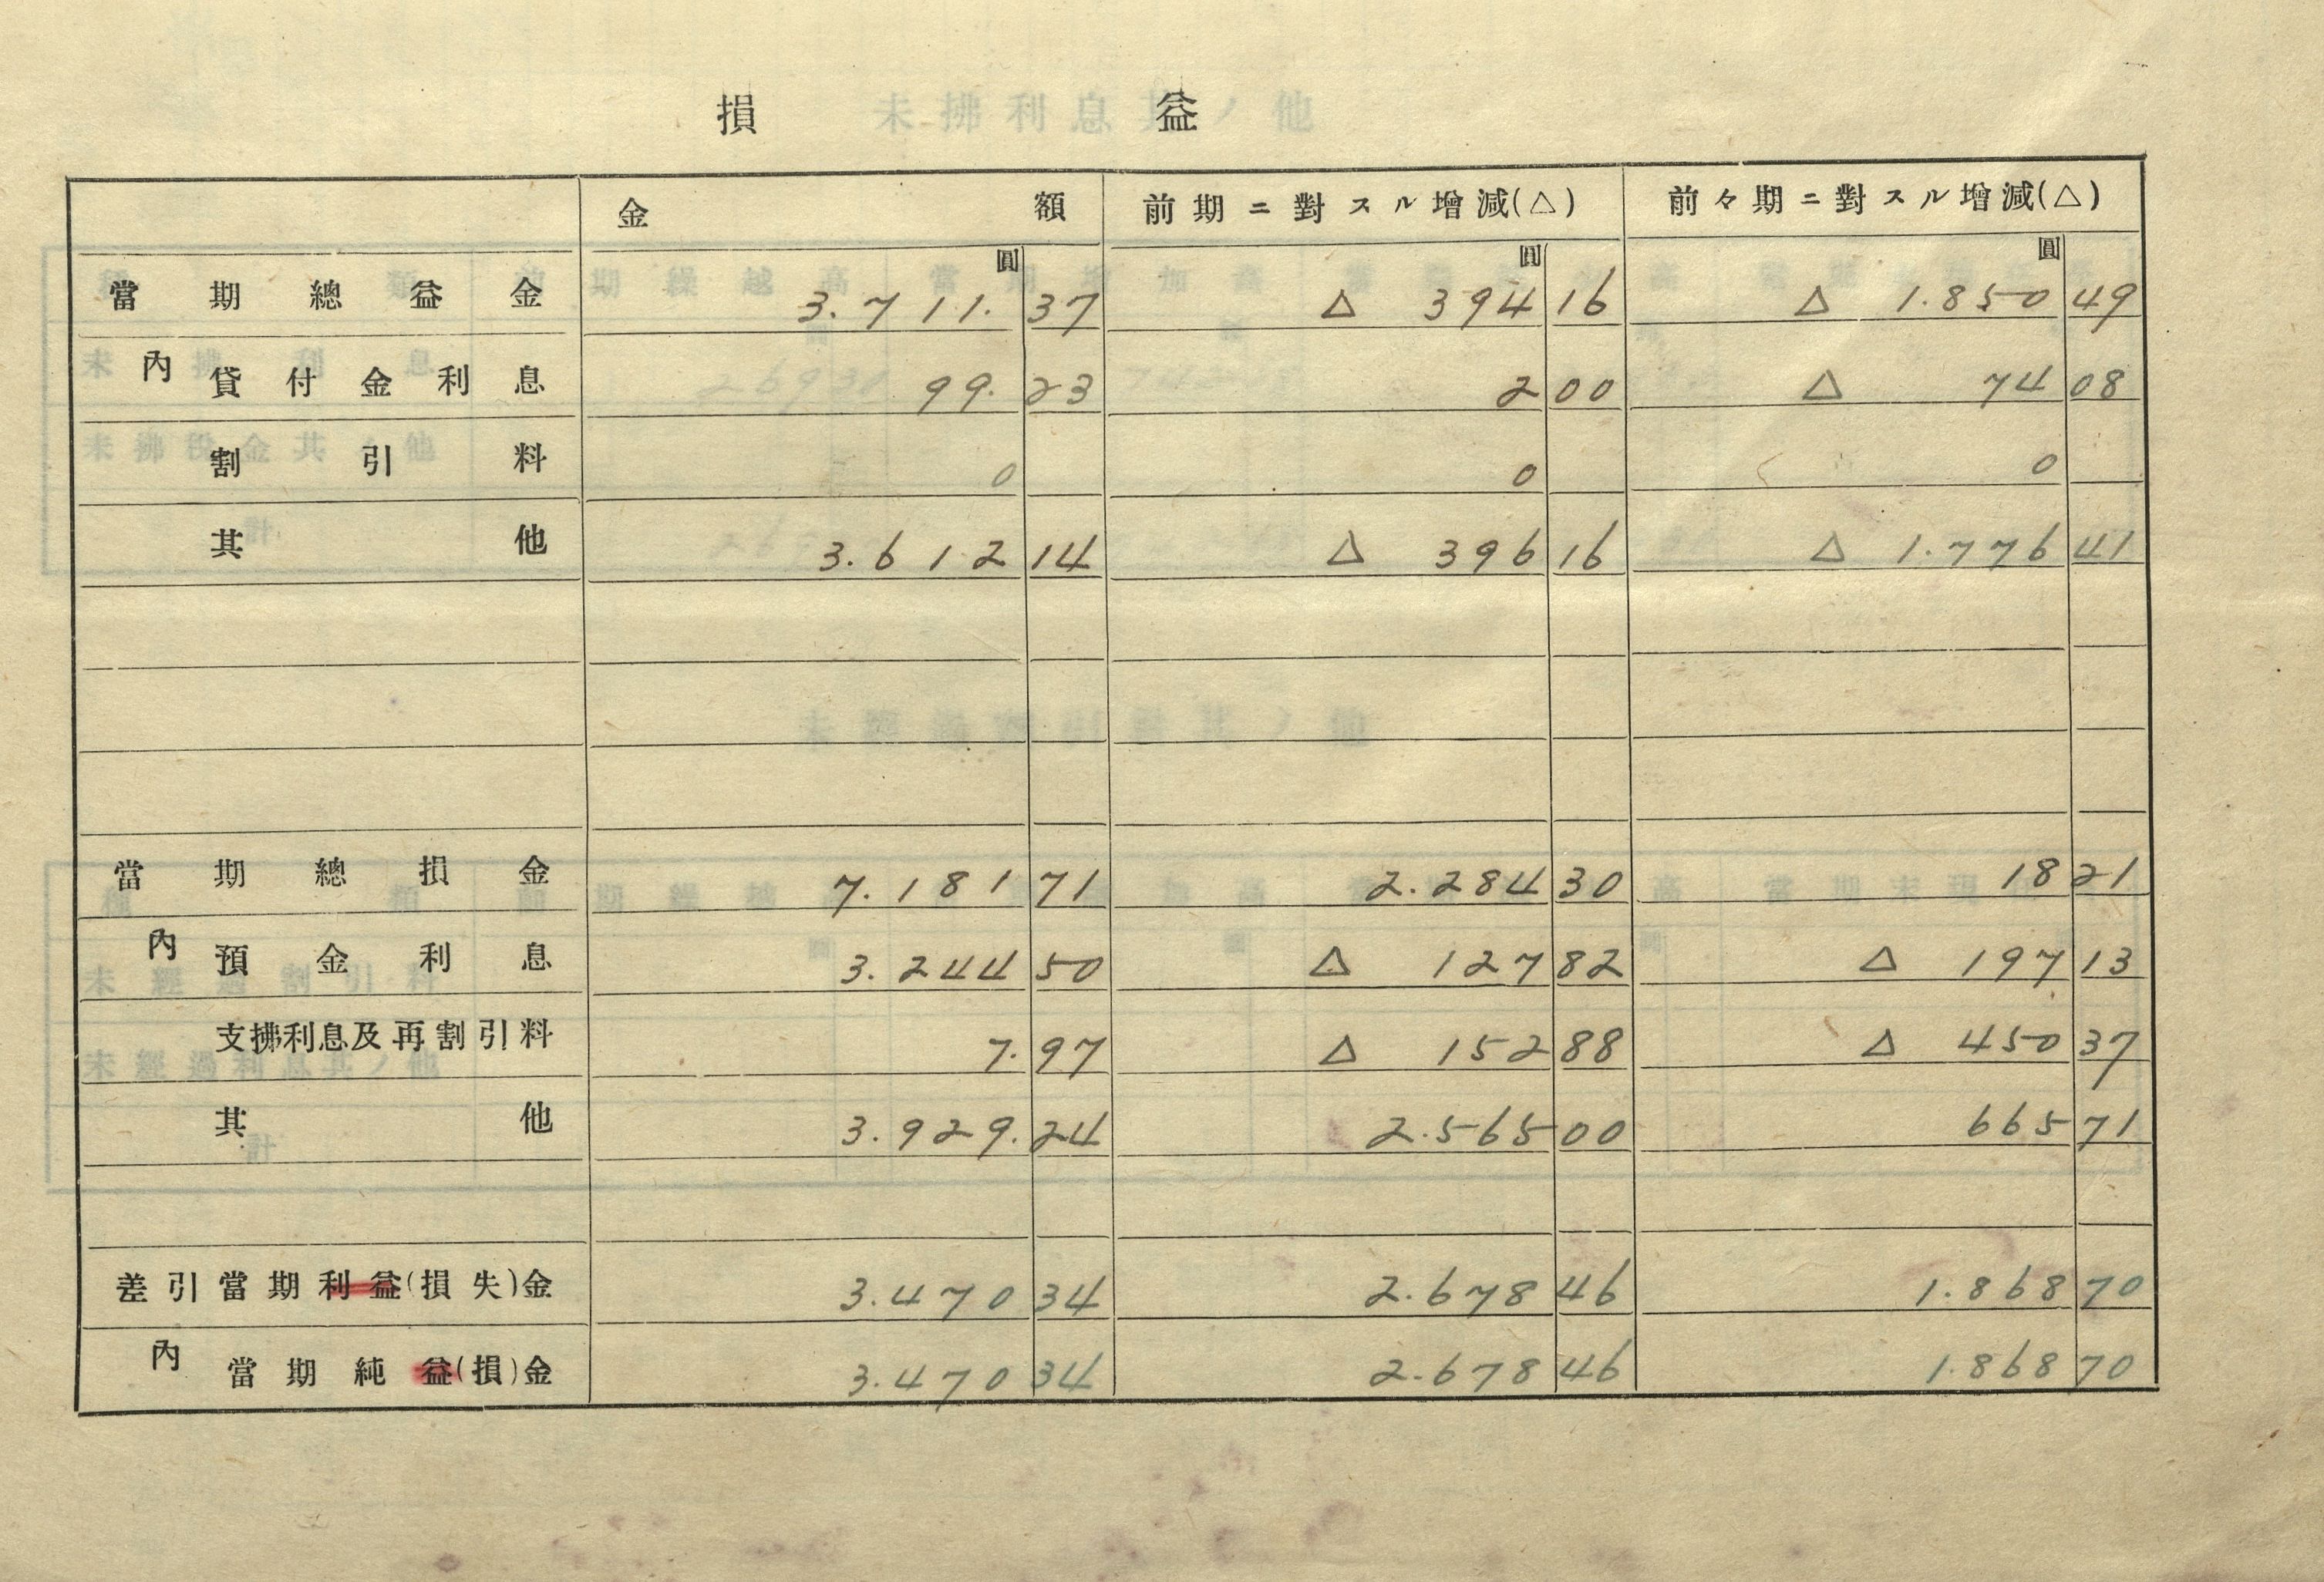 損益
金額 前期ニ對スル増減(△) 前々期ニ對スル増減(△)
圓 圓 圓
當期總益金 3.711.37 △ 394 16 △ 1.850 49
內 貸付金利息 99.23 2 00 △ 74 08
割引料 0 0 0
其他 3.612 14 △ 396 16 △ 1.776 41
當期總損金 7.181 71 2.284 30 18 21
內 預金利息 3.244 50 △ 127 82 △ 197 13
支拂利息及再割引料 7.97 △ 152 88 △ 450 37
其他 3.929.24 2.565 00 665 71
差引當期利益(損失)金 3.470 34 2.678 46 1.868 70
內 當期純益(損)金 3.470 34 2.678 46 1.868 70